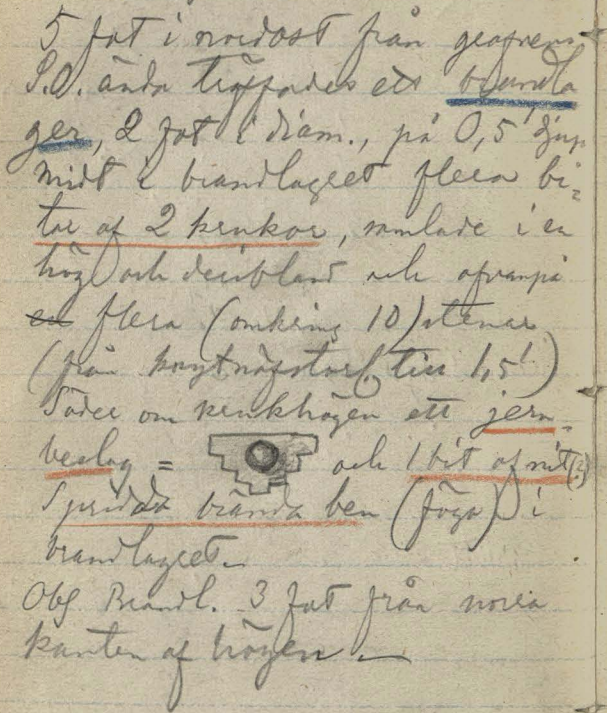 5 fot i nordost från grafvens
S.O. ända träffades ett brandla
ger, 2 fot i diam., på 0,5' djup
midt i brandlagret flera bi-
tar af 2 krukor, samlade i en
hög och deribland och ofvanpå
flera (omkring 10) stenar
(från knytnäfstorl. till 1,5')
Söder om krukhögen ett jern-
beslag = och 1 bit af nit(?)
Spridda brända ben (föga) i
brandlagret.
Obs Brandl. 3 fot från norra
kanten af högen.